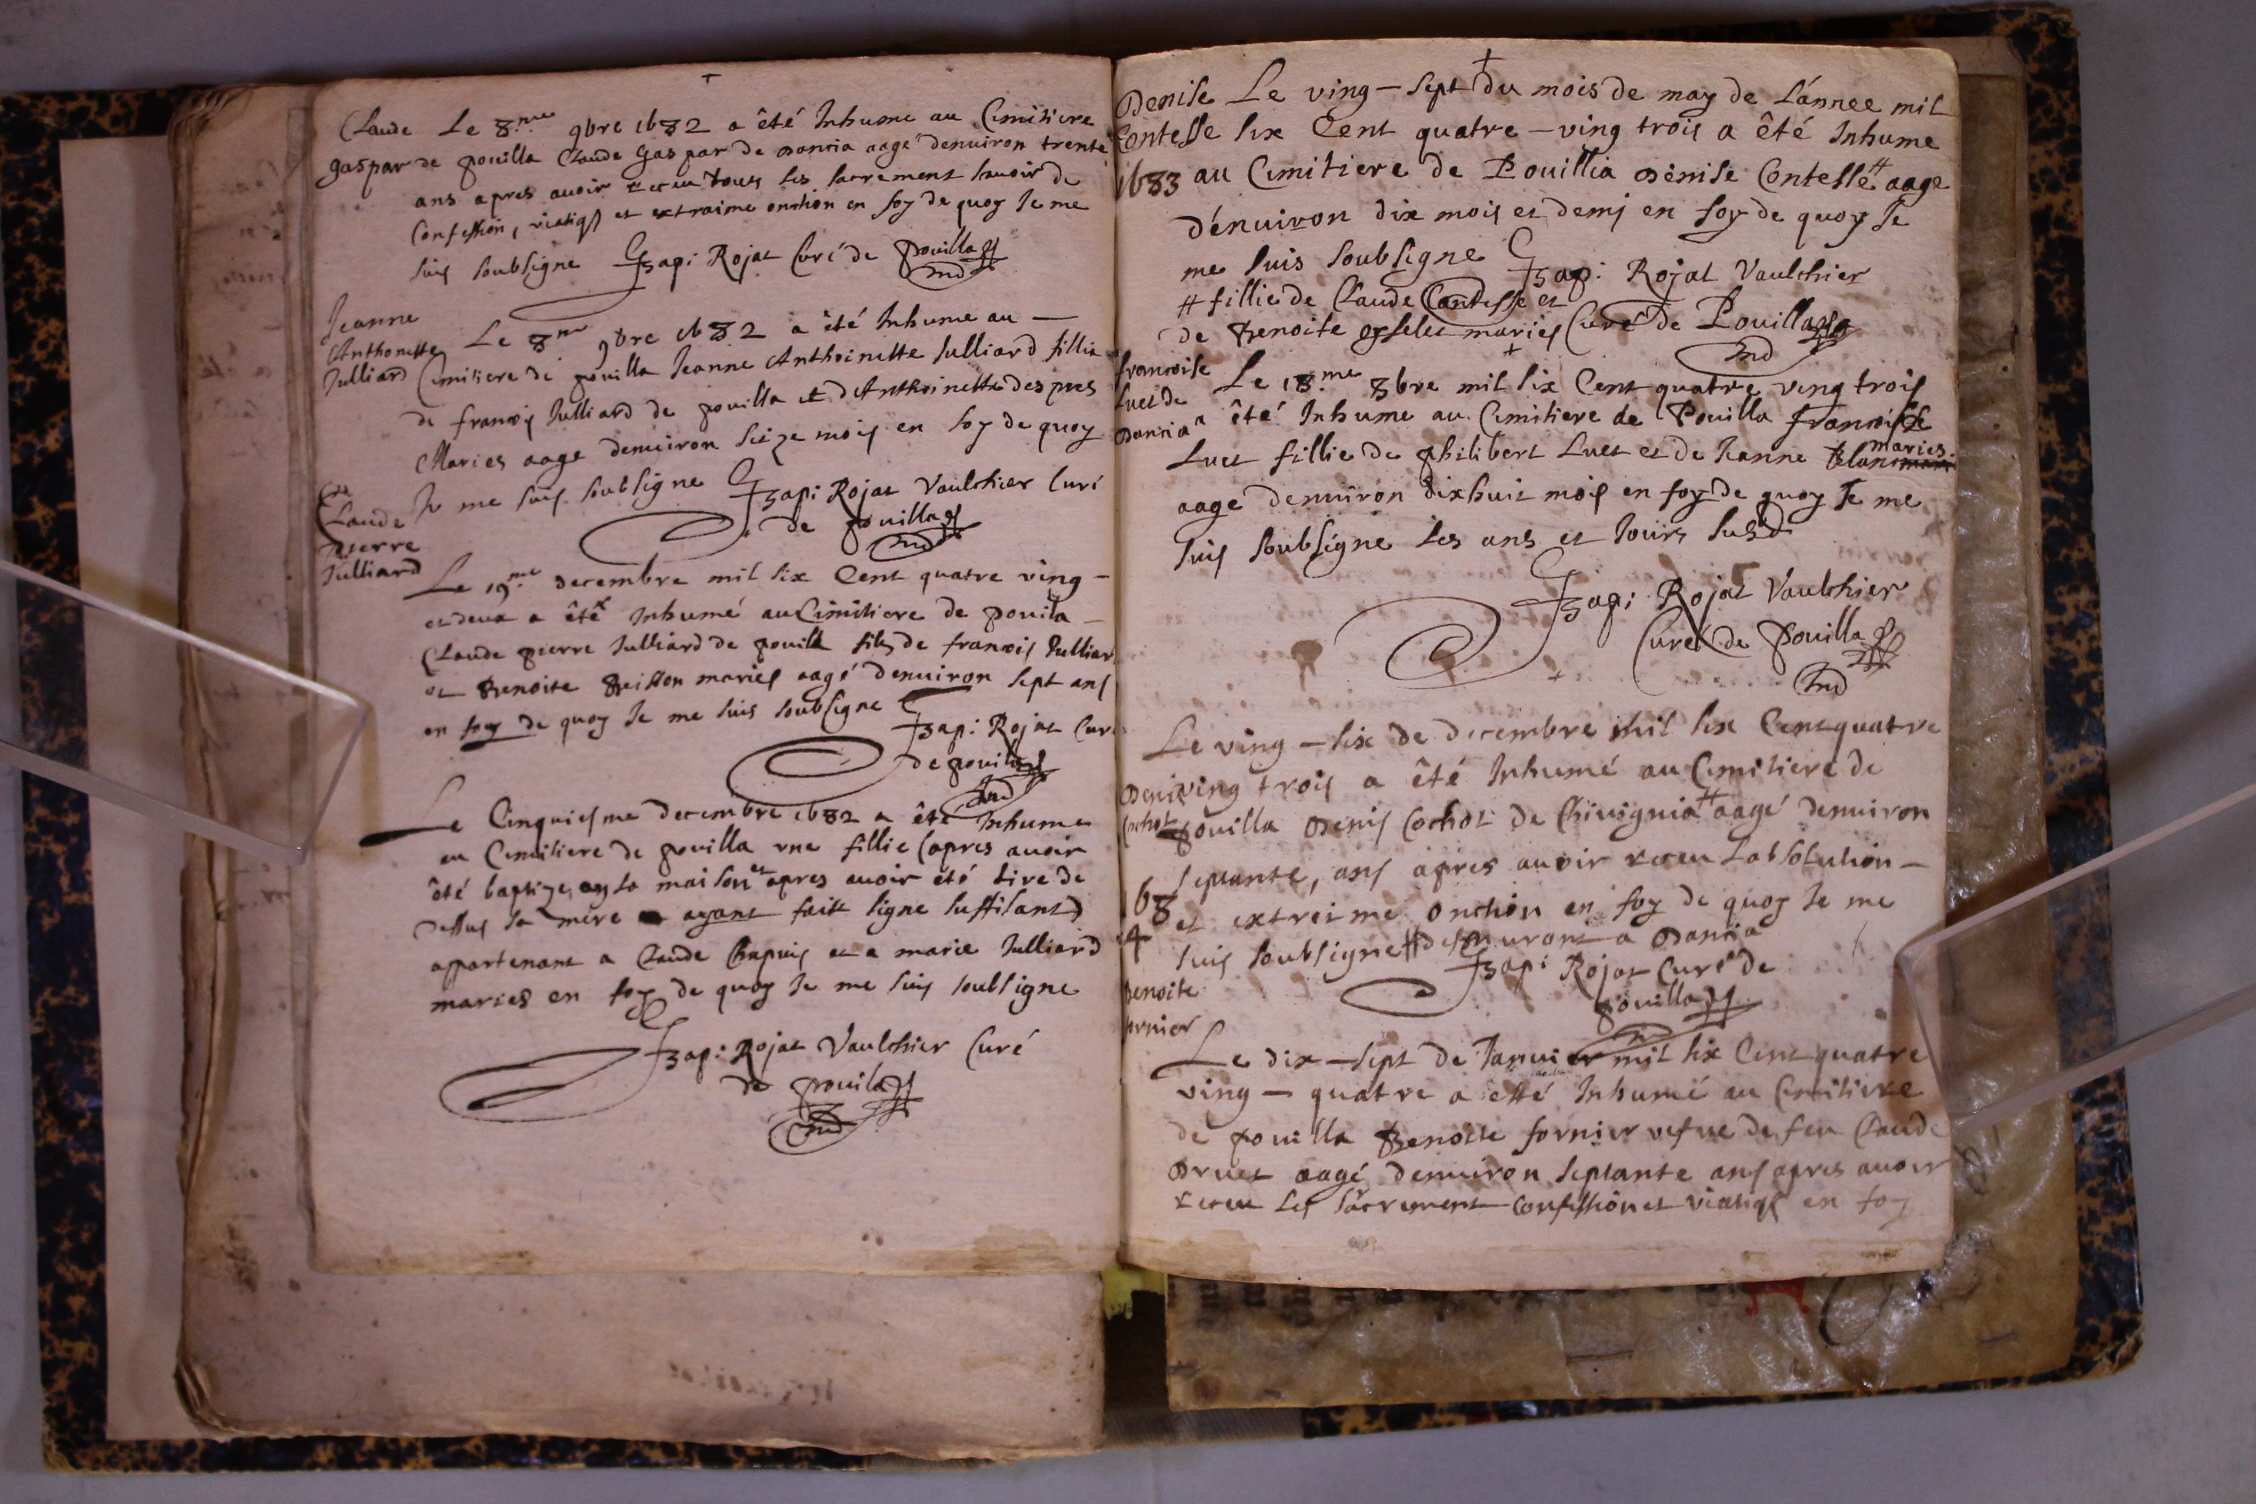 Claude Le 8.me 9bre 1682 a êté Inhume au Cimitiere
gaspar de pouilla Claude Gaspar de Dancia aagé denuiron trente
ans apres auoir receu tous les sacrement scauoir de
Confession, viatiq et extraime onction en foy de quoy Je me
suis soubsigne JBapi Rojat Curé de pouilla
Jeanne
Anthonette
Julliard
Le 8.me 9bre 1682 a êté Inhume au —
Cimitiere de pouilla Jeanne Anthoinette Julliard fillie
de francois Julliard de pouilla et dAnthoinette des pres
Maries aage denuiron seize mois en foy de quoy
Je me suis soubsigne JBapi Rojat Vaulchier Curé
de pouilla
Claude
pierre
Julliard
Le 19.me decembre mil six Cent quatre ving —
et deux a êté Inhumé au Cimitiere de pouila —
Claude pierre Julliard de pouilla fils de francois Julliar
et Benoite Brisson maries aagé denuiron sept ans
en foy de quoy Je me suis soubsigne
JBapi Rojat Curé
de pouilla
Le Cinquiesme decembre 1682 a êté Inhume
au Cimitiere de pouilla vne fillie (apres auoir
êté baptize en la maison et apres auoir eté tire de
dessus sa mere ayant fait signe suffisant)
appartenant a Claude Chapuis et a marie Julliard
maries en foy de quoy Je me suis soubsigne
JBapi Rojat Vaulchier Curé
de pouila
Denise
Contesse
1683
Le ving — sept du mois de may de Lánnee mil
six Cent quatre — ving trois a êté Inhume
au Cimitiere de Pouillia Denise Contesse # aage
dénuiron dix mois et demj en foy de quoy Je
me suis soubsigne JBapi Rojat Vaulchier
# fillie de Claude Contesse et
de Benoite maries Curé de Pouilla
francoise
Luet de
Dancia
Le 18.me 8bre mil six Cent quatre ving trois
a êté Inhume au Cimitiere de Pouilla francoise
Luet fillie de philibert Luet et de Jeanne Blanc maries
aage denuiron dixhuit mois en foy de quoy Je me
suis soubsigne Les ans et Jours susd
JBapi Rojat Vaulchier
Curé de pouilla
Le ving — six de decembre mil six Cent quatre
ving trois a êté Inhumé au Cimitiere de
pouilla Denis Cochot de Chiuignia # aagé denuiron
septante, ans apres auoir receu Labsolution —
et extreime onction en foy de quoy Je me
suis soubsigne # demeurant a Dancia
JBapi Rojat Curé de
pouilla
Denis
Cochot
168
4
Benoite
fornier
Le dix — sept de Januier mil six Cent quatre
ving — quatre a etté Inhumé au Cimitiere
de pouilla Benoite fornier vefue de feu Claude
Druet aagé denuiron septante ans apres auoir
receu Les sacrement confession et viatiq en foy